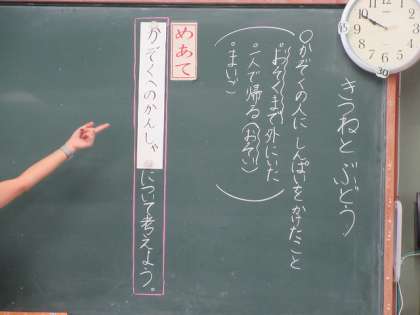 きつねとぶどう
○かぞくの人にしんぱいをかけたこと
・おそくまで外にいた
・一人で帰る(おそい)
・まいご
めあて
かぞくへのかんしゃについて考えよう。